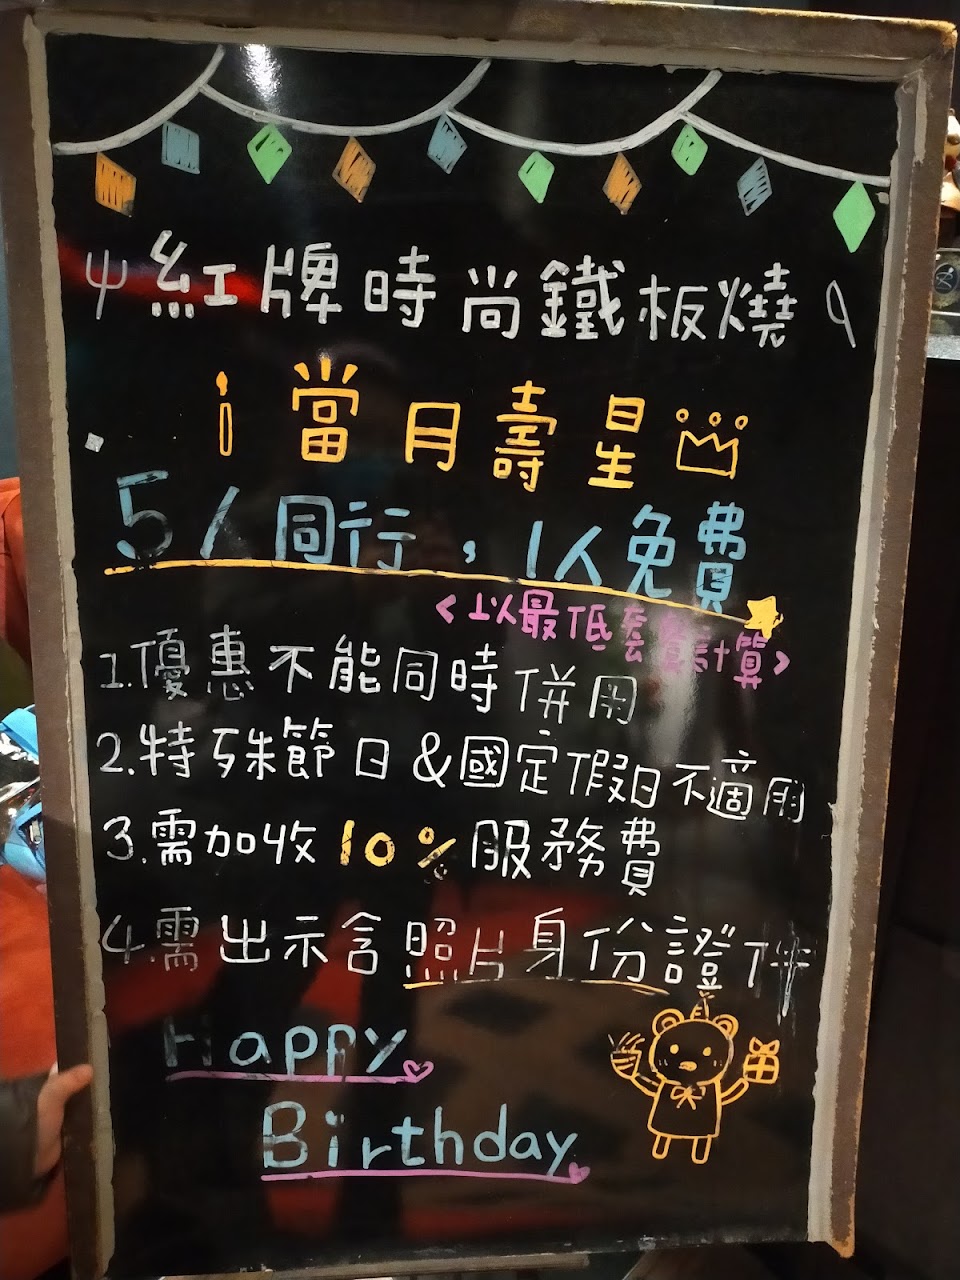 紅牌時尚鐵板燒
當月壽星
5人同行，1人免費
<以最低套餐計算>
1.優惠不能同時併用
2.特殊節日&國定假日不適用
3.需加收10%服務費
4.需出示含照片身份證件
Happy
Birthday